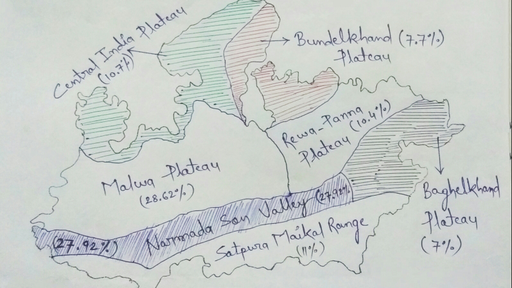 Central India Plateau
(10.7%)
Bundelkhand (7.7%)
Plateau
Rewa-Panna (10.4%)
Plateau
Malwa Plateau
(28.62%)
Narmada Son Valley (27.92%)
(27.92%)
Satpura Maikal Range
(11%)
Baghelkhand
Plateau
(7%)